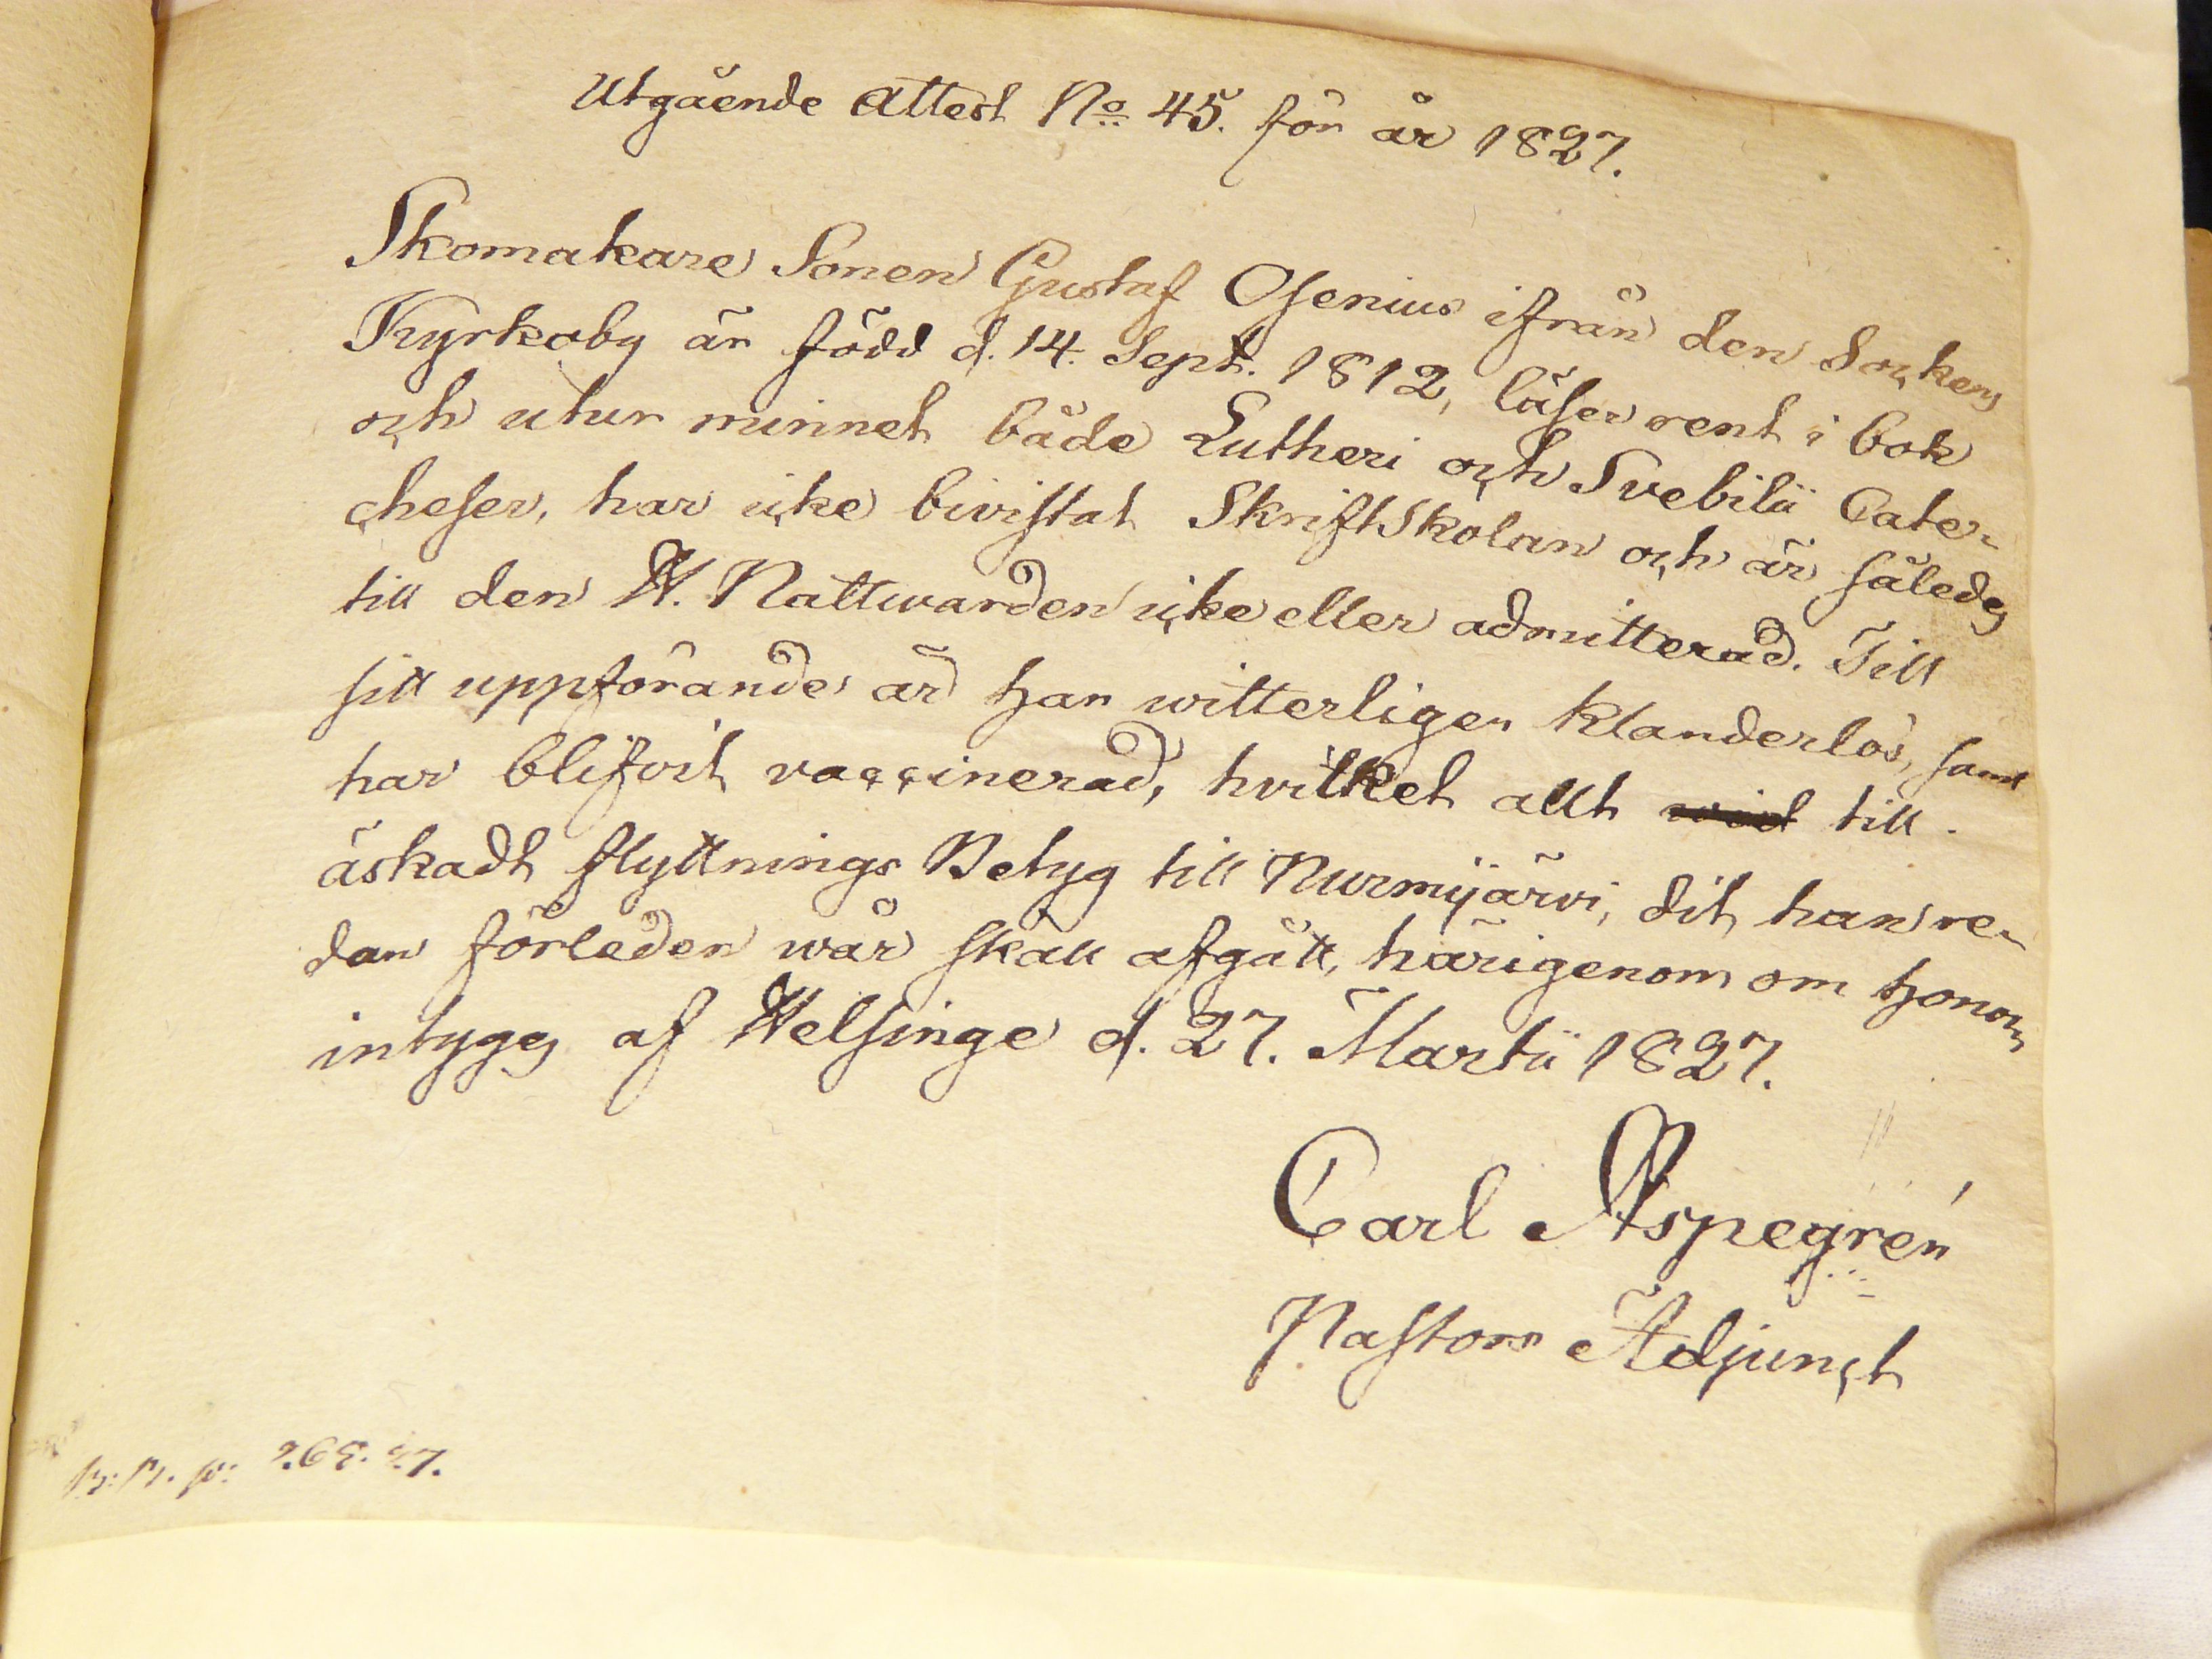 Utgående Attest No 45. för år 1827.
Skomakare Sonen Gustaf Osenius ifrån den Sockens
Kyrkoby är född d. 14. Sept. 1812, läser rent i bok
och utur minnet både Lutheri och Svebilii Cate-
cheser, har icke bivistat SkriftSkolan och är således
till den H. Nattwarden icke eller admitterad. Till
sitt uppförande är han witterligen klanderlös, samt
har blifvit vaccinerad, hvilket allt wid till
äskadt flyttnings Betyg till Nurmijärvi, dit han re-
dan förleden wår skall afgått, härigenom om honom
intyges af Helsinge d. 27. Martii 1827.
Carl Aspegrén
Pastors Adjunct